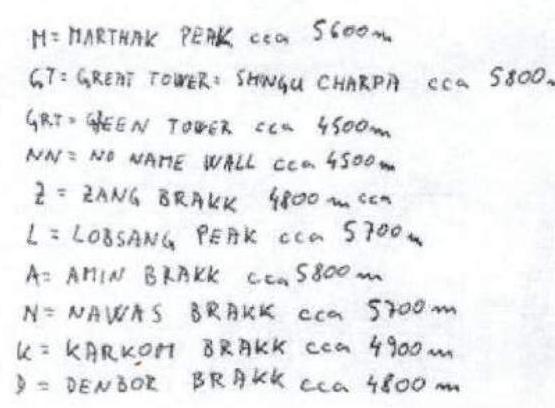 M= MARTHAK PEAK cca 5600m
GT= GREAT TOWER= SHINGU CHARPA cca 5800m
GRT= GREEN TOWER cca 4500m
NN= NO NAME WALL cca 4500m
Z = ZANG BRAKK 4800 m cca
L = LOBSANG PEAK cca 5700m
A= AMIN BRAKK cca 5800m
N= NAWAS BRAKK cca 5700m
K= KARKOM BRAKK cca 4900m
D = DENBOR BRAKK cca 4800m